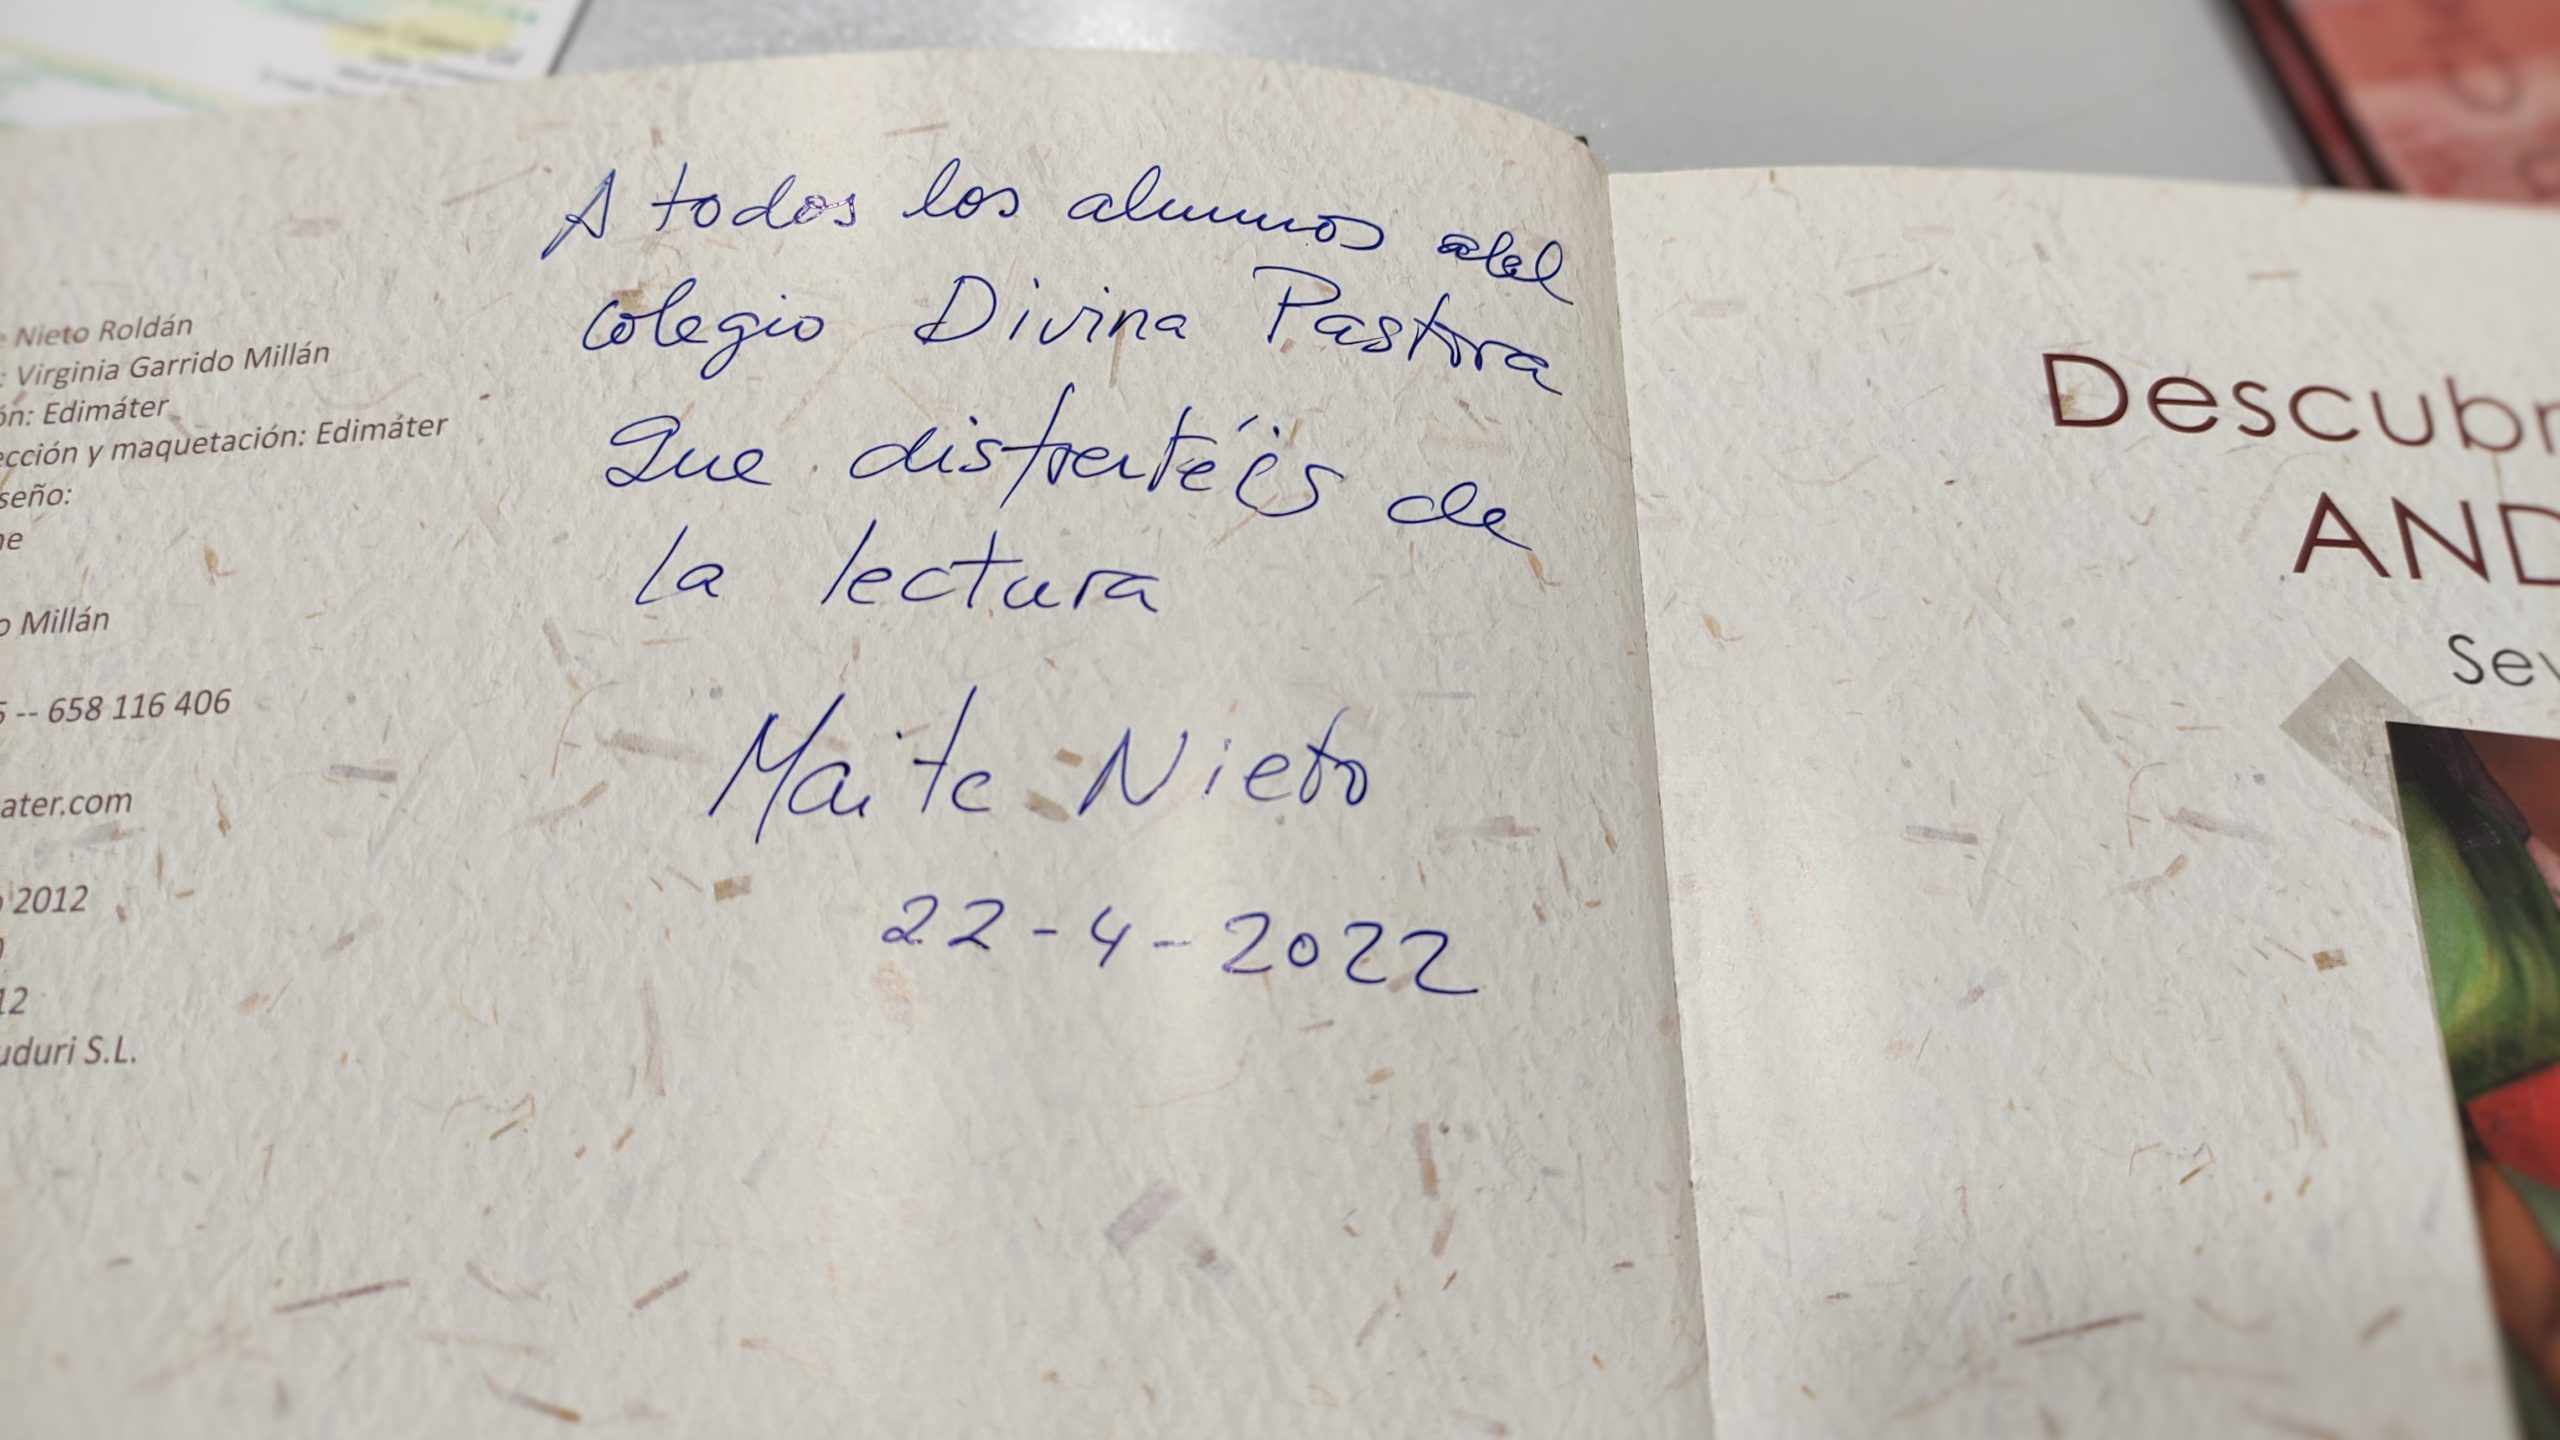 A todos los alumnos del
colegio Divina Pastora
Que disfrutéis de
la lectura
Maite Nieto
22-4-2022
Nieto Roldán
: Virginia Garrido Millán
ón: Edimáter
ección y maquetación: Edimáter
seño:
ne
o Millán
5 -- 658 116 406
ater.com
2012
12
uduri S.L.
Descubr
AND
Sev